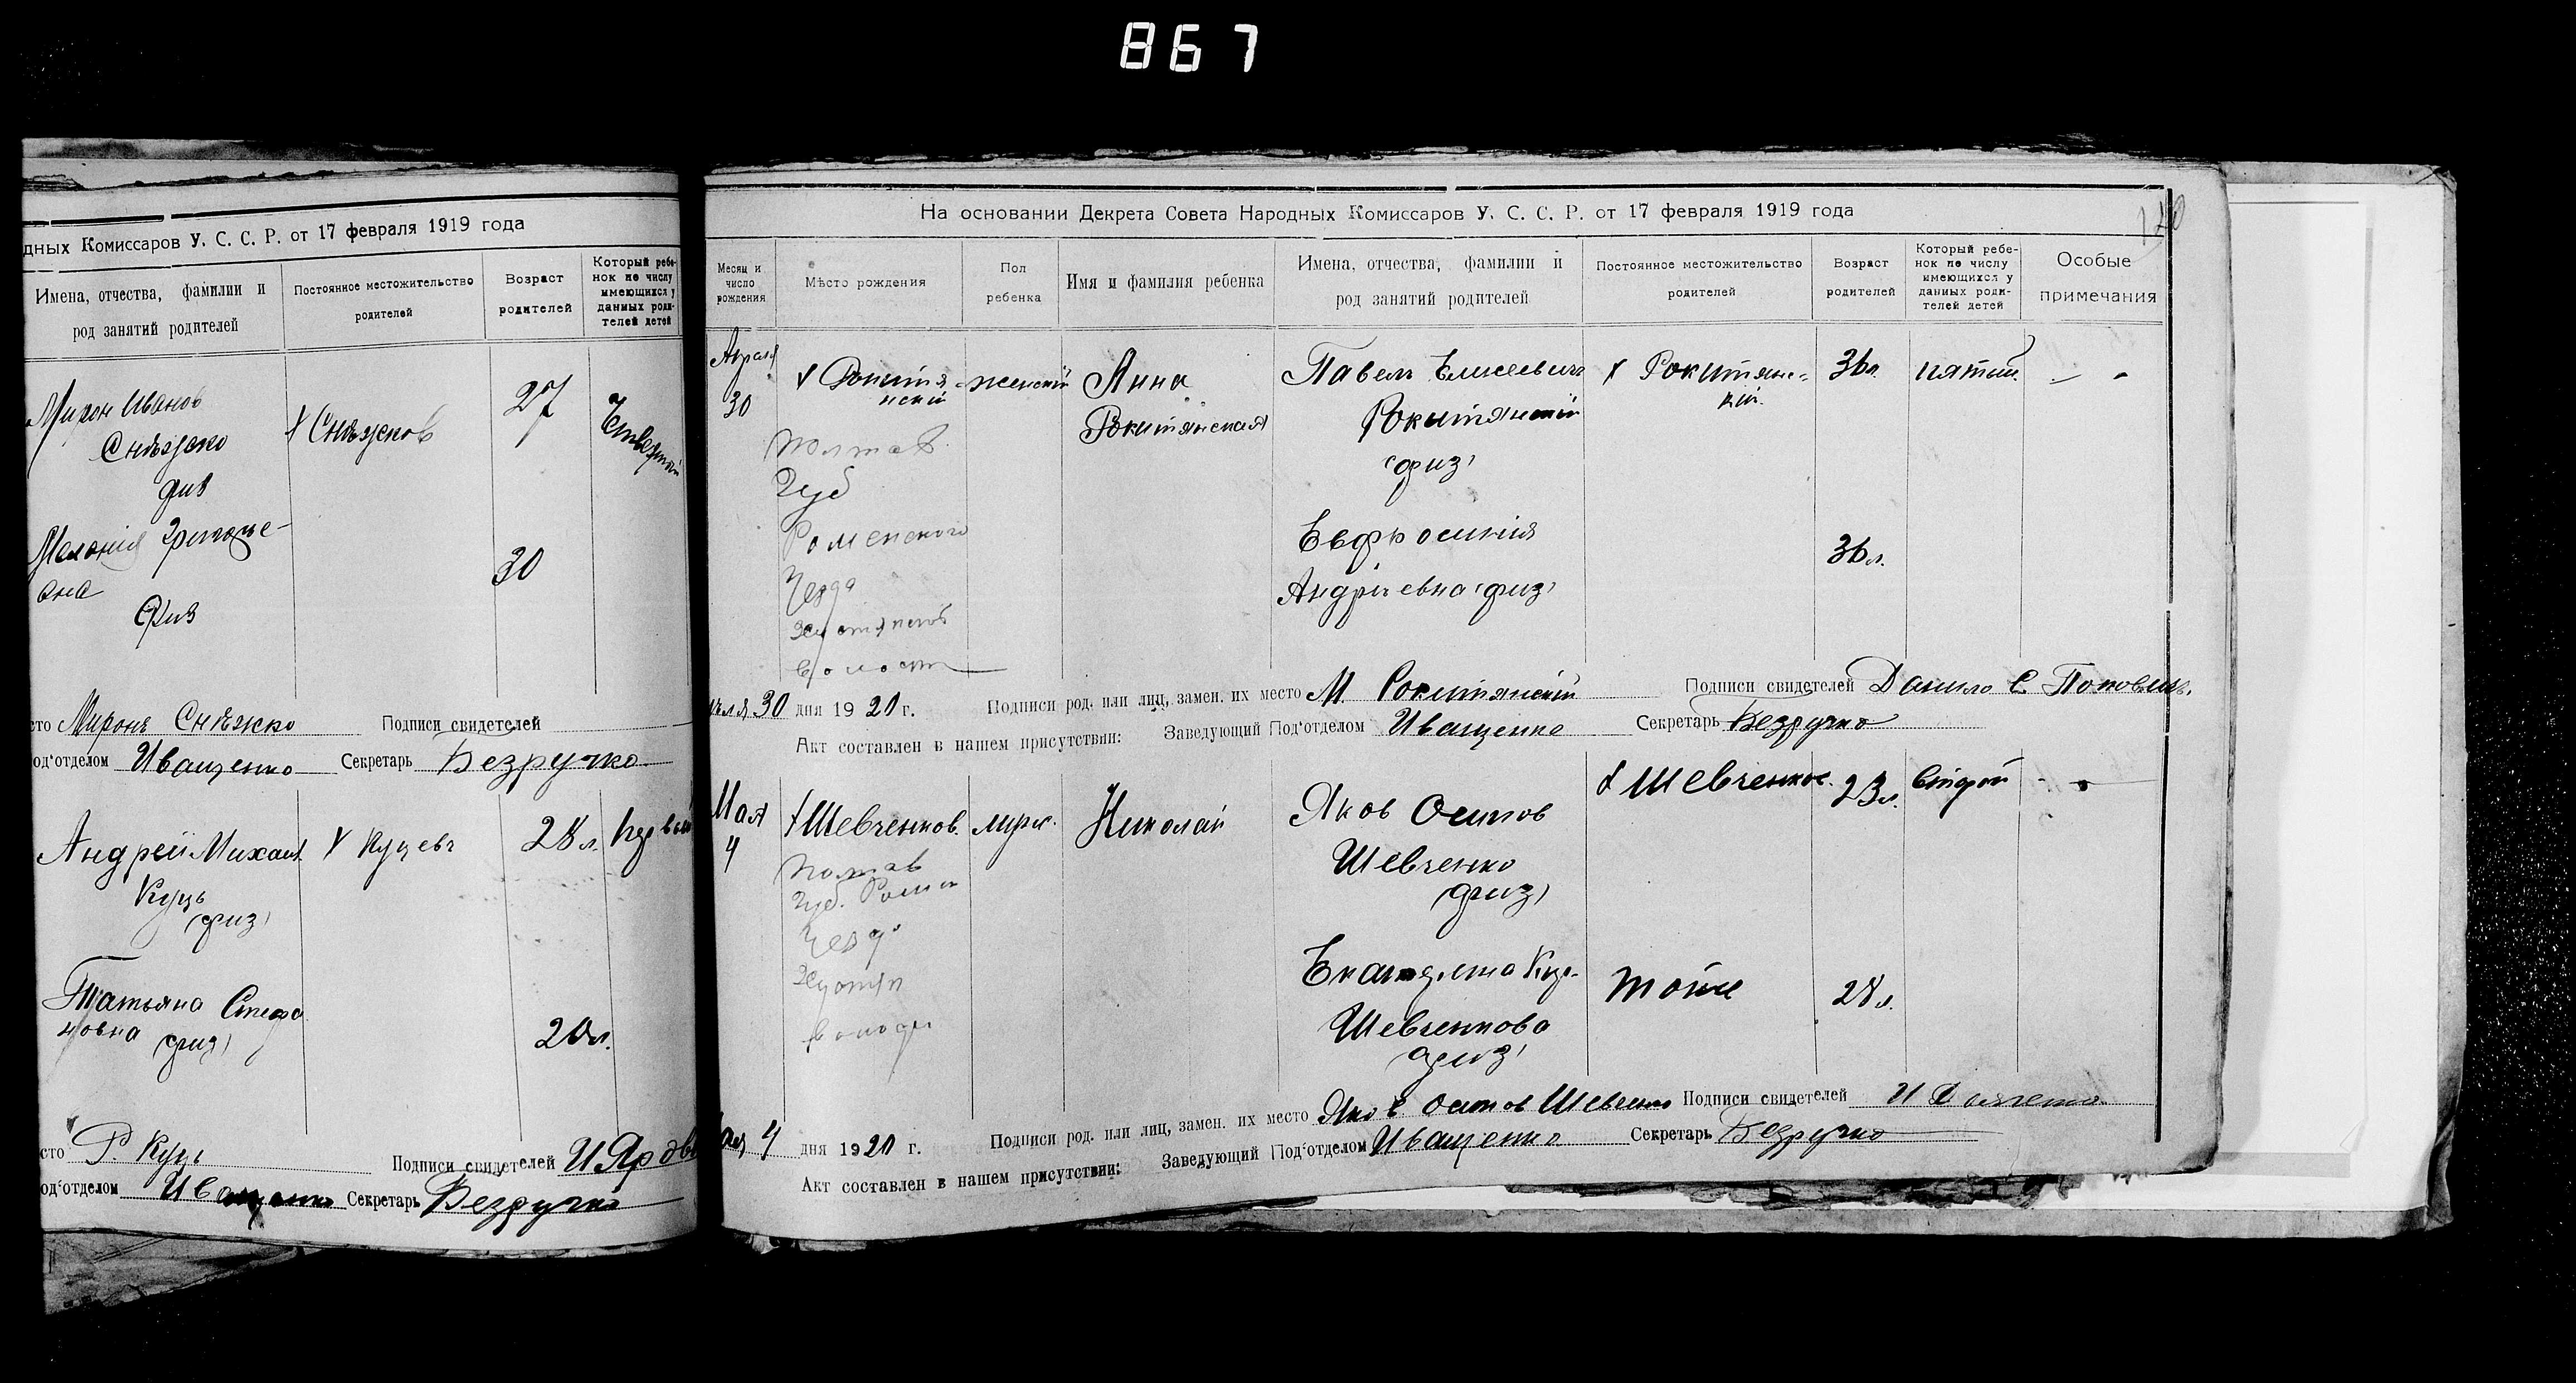 867
дных Комиссаров У. С. С. Р. от 17 февраля 1919 года
Имена, отчества, фамилии и
род занятий родителей
Постоянное местожительство
родителей
Возраст
родителей
Который ребе-
нок по числу
имеющихся у
данных роди-
телей детей
Мирон Иванов
Снѣжко
физ
30
Х Снѣжков
27
Меланія Григорье-
вна
Физ
сто Миронъ Снѣжко Подписи свидетелей
од‘отделом Иващенко Секретарь Безручко
Андрей Михаил.
Куцъ
(физ)
Х Куцевъ
28 л.
Татьяна Стефа
новна (физ)
20 л.
сто Р. Куцъ Подписи свидетелей
од‘отделом Иващенко Секретарь Безручко
На основании Декрета Совета Народных Комиссаров У. С. С. Р. от 17 февраля 1919 года
Месяц и
число
рождения
Место рождения
Пол
ребенка
Имя и фамилия ребенка
Имена, отчества, фамилии и
род занятий родителей
Постоянное местожительство
родителей
Возраст
родителей
Который ребе-
нок по числу
имеющихся у
данных роди-
телей детей
Особые
примечания
Апреля
30
Х Рокитя
нский
Полтав.
Губ
Роменского
Уезда
волост
женскій
Анна
Рокитянская
Павелъ Елисеевичъ
Рокитянскій
(физ)
Евфросинія
Андріевна (физ)
Х Рокитянс-
кій.
36 л.
36 л.
пятый
реля 30 дня 1920 г. Подписи род. или лиц, замен. их место М. Рокитянскій Подписи свидетелей Данило С. Поповичъ.
Акт составлен в нашем присутствии: Заведующий Под‘отделом Иващенко Секретарь Безручко
Мая
4
Х Шевченков.
Полтав
Губ. Ромен
Уезда
муж.
Николай
Яков Осипов
Шевченко
(физ)
Екатерина
Шевченкова
(физ)
Х Шевченков.
тоже
23 л.
28 л.
второй
ая 4 дня 1920 г. Подписи род. или лиц, замен. их место Яков Осипов Шевченко Подписи свидетелей
Акт составлен в нашем присутствии: Заведующий Под‘отделом Иващенко Секретарь Безручко